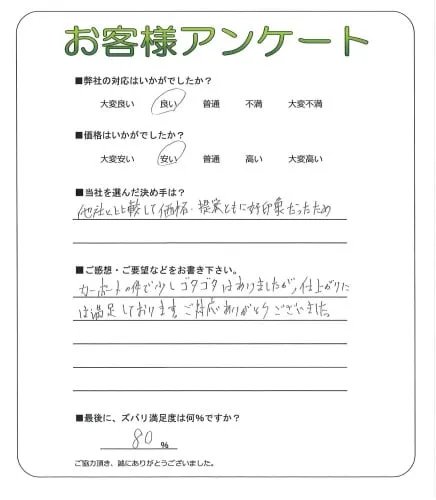 お客様アンケート
■弊社の対応はいかがでしたか？
大変良い 良い 普通 不満 大変不満
■価格はいかがでしたか？
大変安い 安い 普通 高い 大変高い
■当社を選んだ決め手は？
他社と比較して価格・提案ともに好印象だったため
■ご感想・ご要望などをお書き下さい。
カーポートの件で少しゴタゴタはありましたが、仕上がりに
は満足しております。ご対応ありがとうございました。
■最後に、ズバリ満足度は何％ですか？
80 ％
ご協力頂き、誠にありがとうございました。